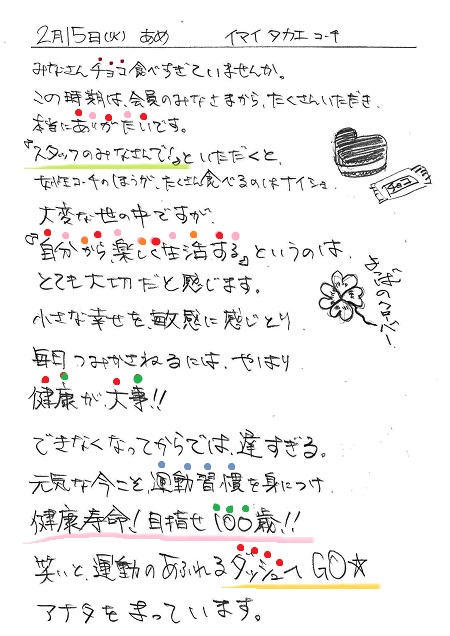 2月15日(火) あめ イマイタカエコーチ
みなさんチョコ食べすぎていませんか。
この時期は、会員のみなさまから、たくさんいただき
本当にありがたいです。
『スタッフのみなさんで!』といただくと、
女性コーチのほうが、たくさん食べるのはナイショ.
チョコ
大変な世の中ですが、
『自分から楽しく生活する』というのは、
とても大切だと感じます。
よつばのクローバー
小さな幸せを、敏感に感じとり、
毎日つみかさねるには、やはり
健康が大事!!
できなくなってからでは、遅すぎる。
元気な今こそ、運動習慣を身につけ、
健康寿命!目指せ100歳!!
笑いと、運動のあふれるダッシュへGO☆
アナタをまっています。